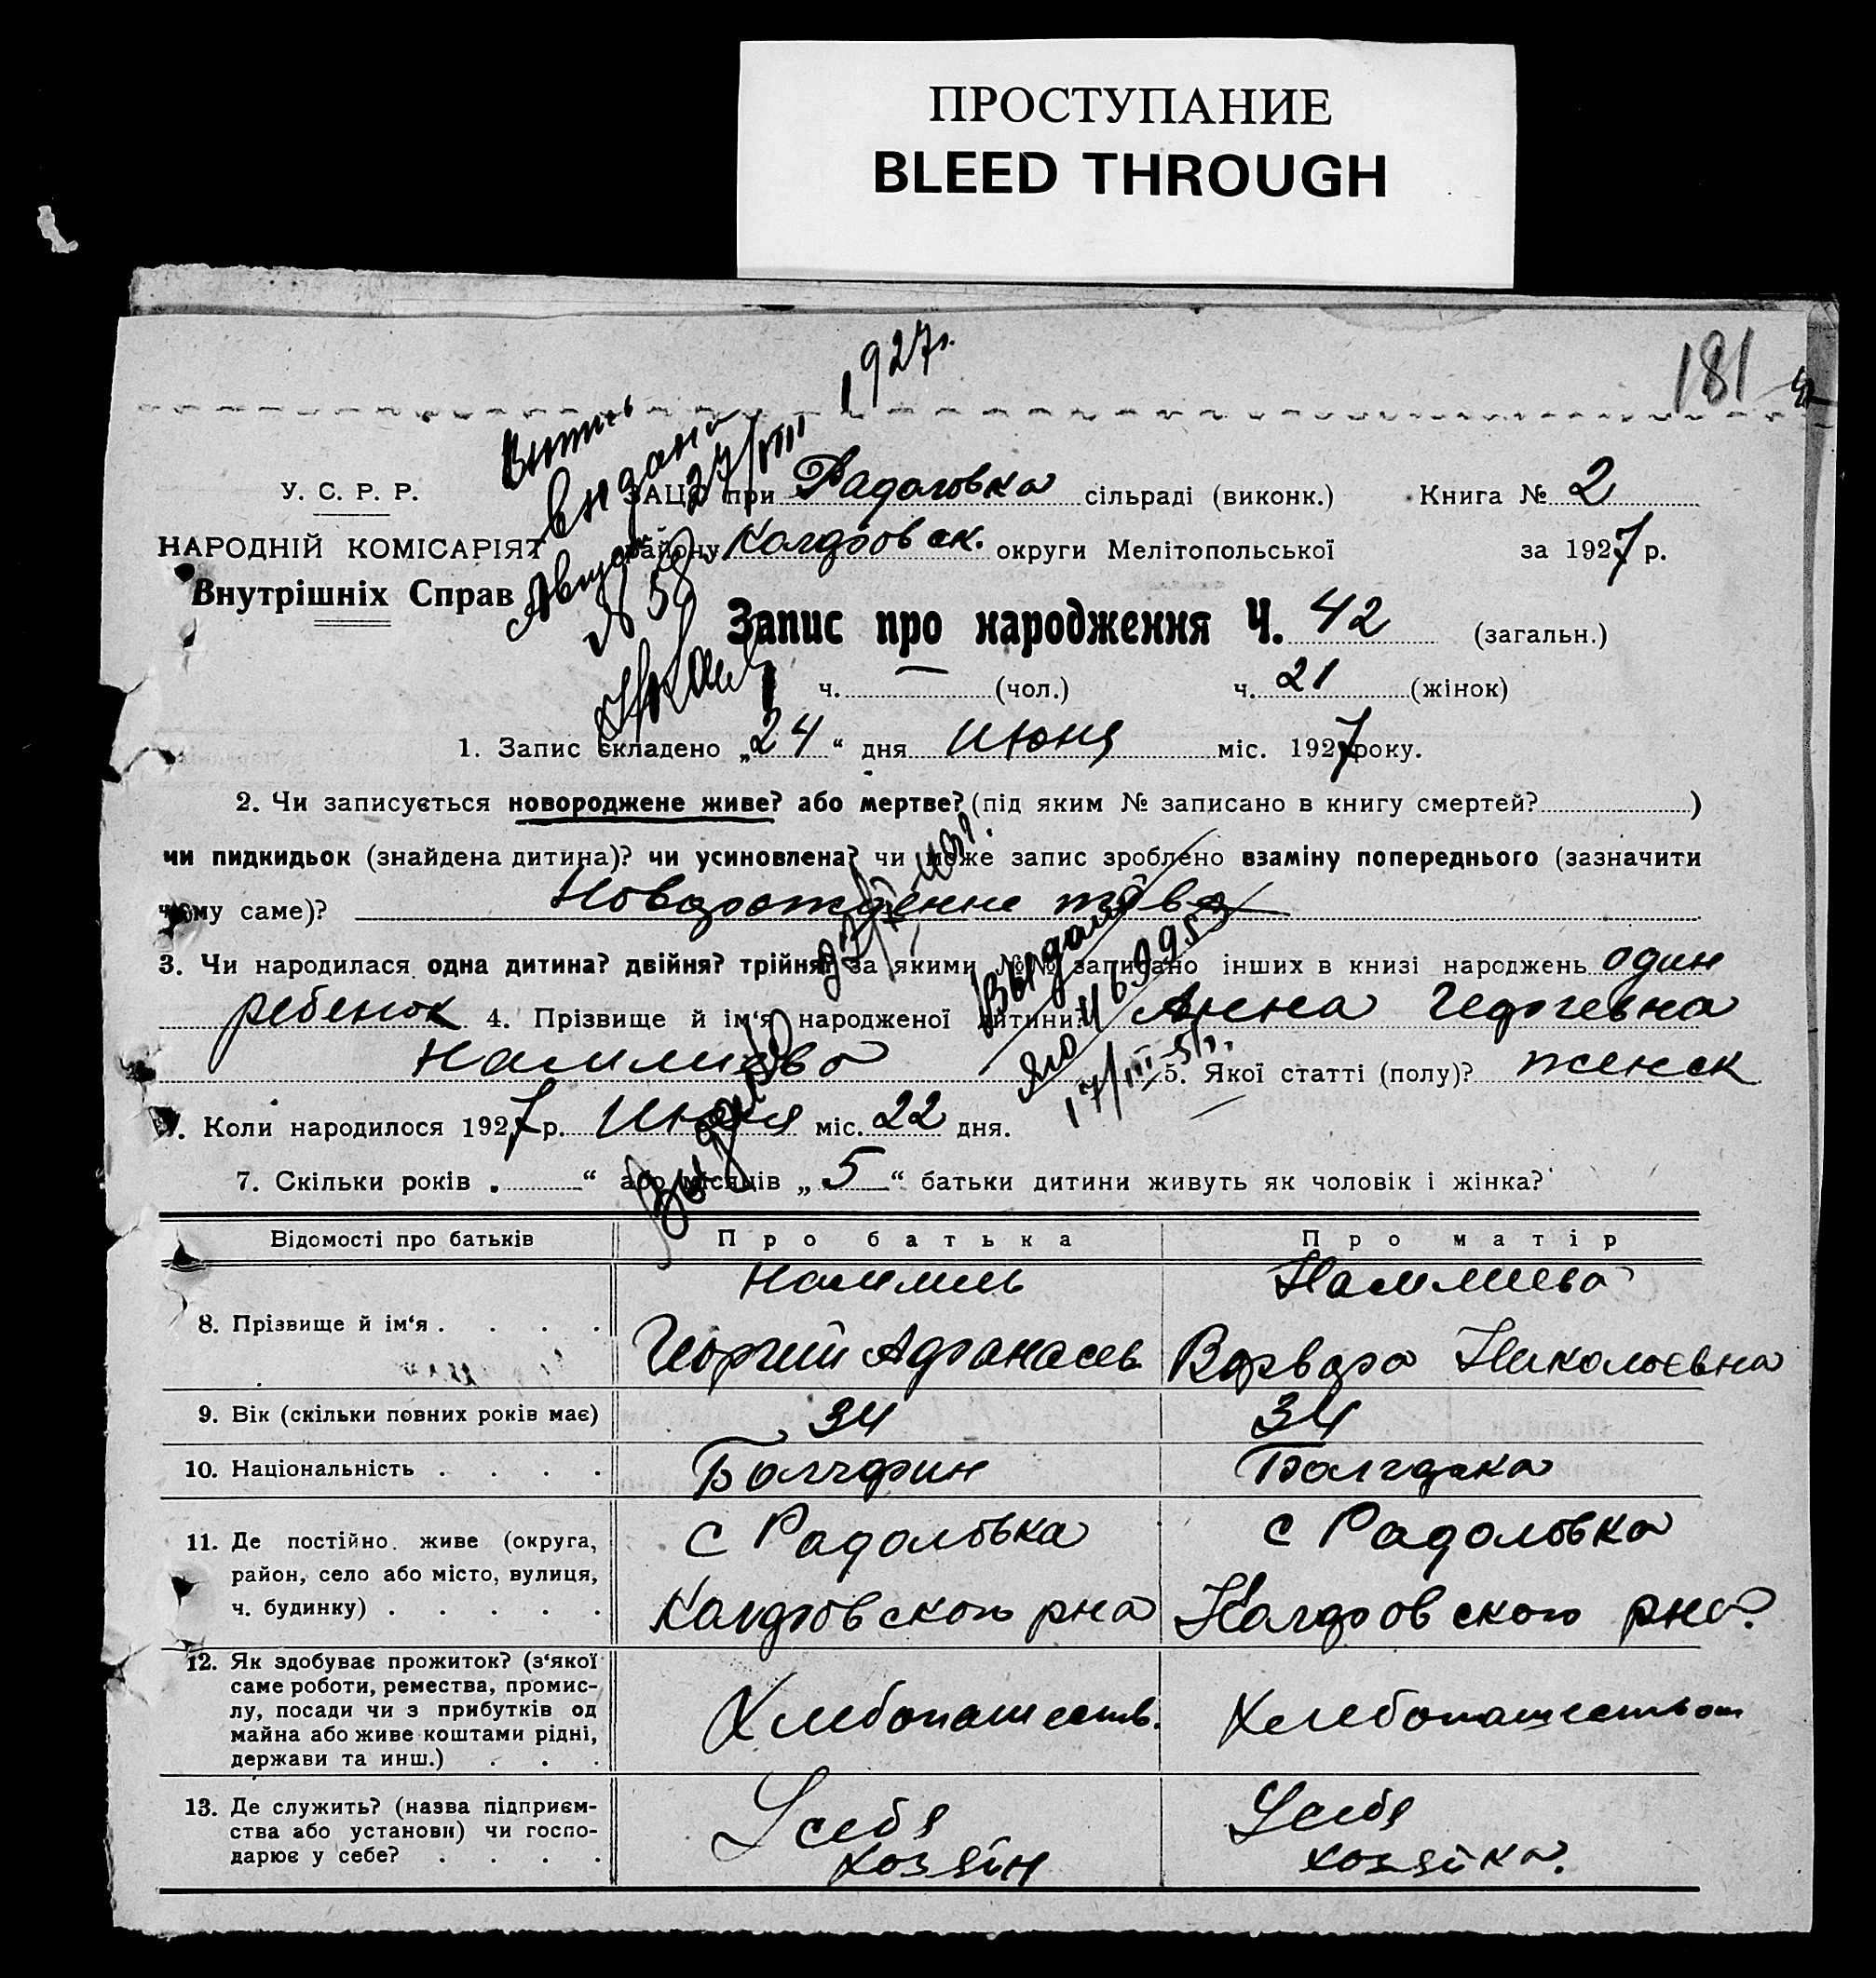 ПРОСТУПАНИЕ
BLEED THROUGH
1927г.
181
У. С. Р. Р.
НАРОДНІЙ КОМІСАРІЯТ
Внутрішніх Справ
ЗАЦС при Радоловка сільраді (виконк.) Книга № 2
району округи Мелітопольської за 1927 р.
выдана
27/VIII
Запис про народження Ч. 42 (загальн.)
ч. — (чол.) ч. 21 (жінок)
1. Запис складено „24“ дня Июня міс. 1927 року.
2. Чи записується новороджене живе? або мертве? (під яким № записано в книгу смертей? )
чи пидкидьок (знайдена дитина)? чи усиновлена? чи може запис зроблено взаміну попереднього (зазначити
чому саме)?
3. Чи народилася одна дитина? двійня? трійня? за якими №№ записано інших в книзі народжень один
ребенок 4. Прізвище й ім'я народженої дитини? Анна Георгевна
5. Якої статті (полу)? женск
17/III-51г.
6. Коли народилося 1927 р. Июня міс. 22 дня.
7. Скільки років „ “ або місяців „5“ батьки дитини живуть як чоловік і жінка?
Відомості про батьків Про батька Про матір
8. Прізвище й ім'я . . . .
Георгий Афанасев. Варвара Николаєвна
9. Вік (скільки повних років має) 34 34
10. Національність . . . . Болгарин Болгарка
11. Де постійно живе (округа, район, село або місто, вулиця, ч. будинку) . . . . .
с Радоловка с Радоловка
рна рна
12. Як здобуває прожиток? (з'якої саме роботи, ремества, промислу, посади чи з прибутків од майна або живе коштами рідні, держави та инш.) . . .
Хлебопашеств. Хлебопашеством
13. Де служить? (назва підприємства або установи) чи господарює у себе? . . . .
У себя У себя
хозяйн хозяйка.